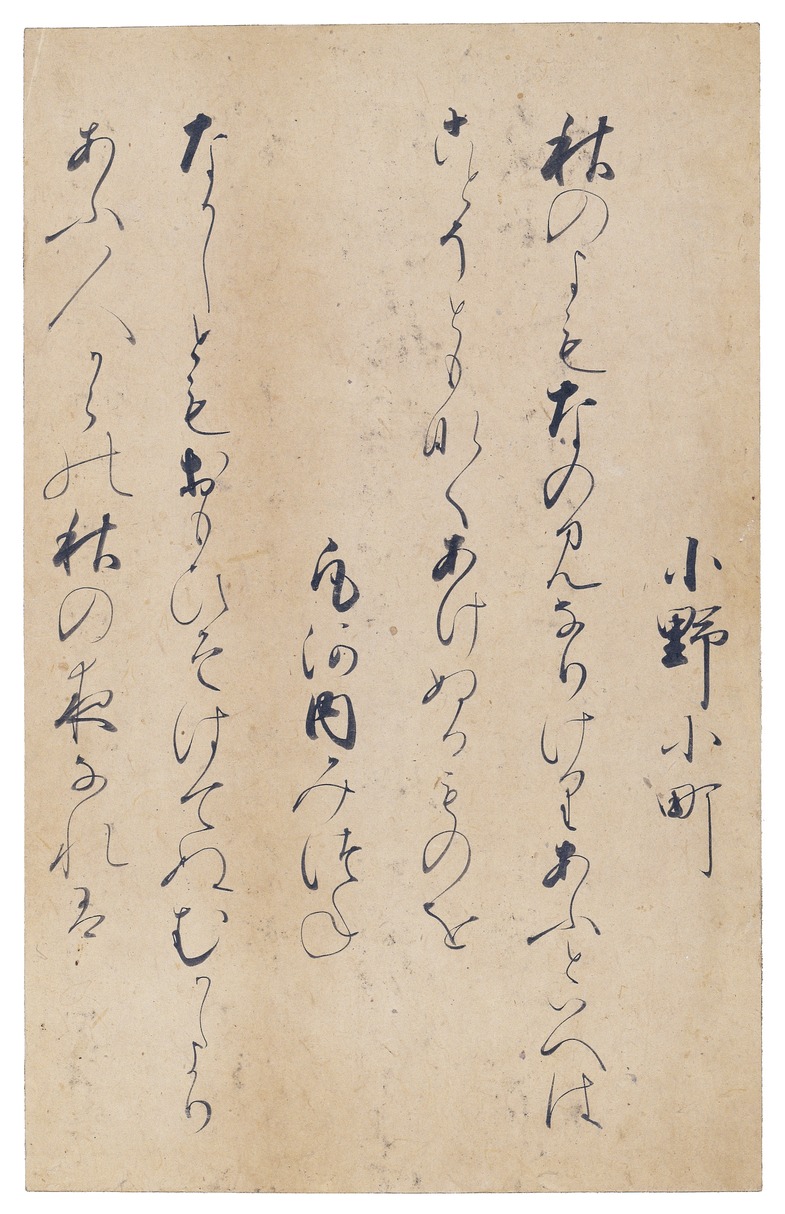 小野小町
秋のよもなの見なりけ里あふといへは
ことそともなくあけぬるものを
凡河内みつね
なかしともおもひそはてぬむかしより
あふ人からの秋の夜なれは